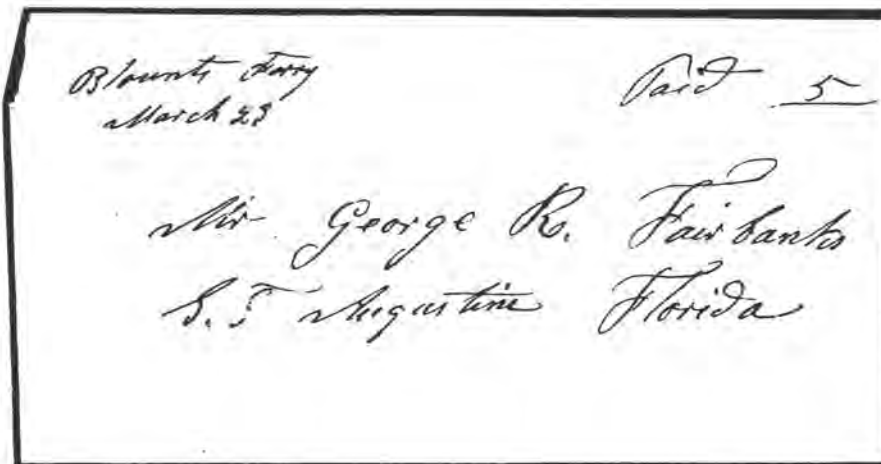 Blounts Ferry
March 23
Paid 5
Mr George R. Fairbanks
S.T Augustine Florida